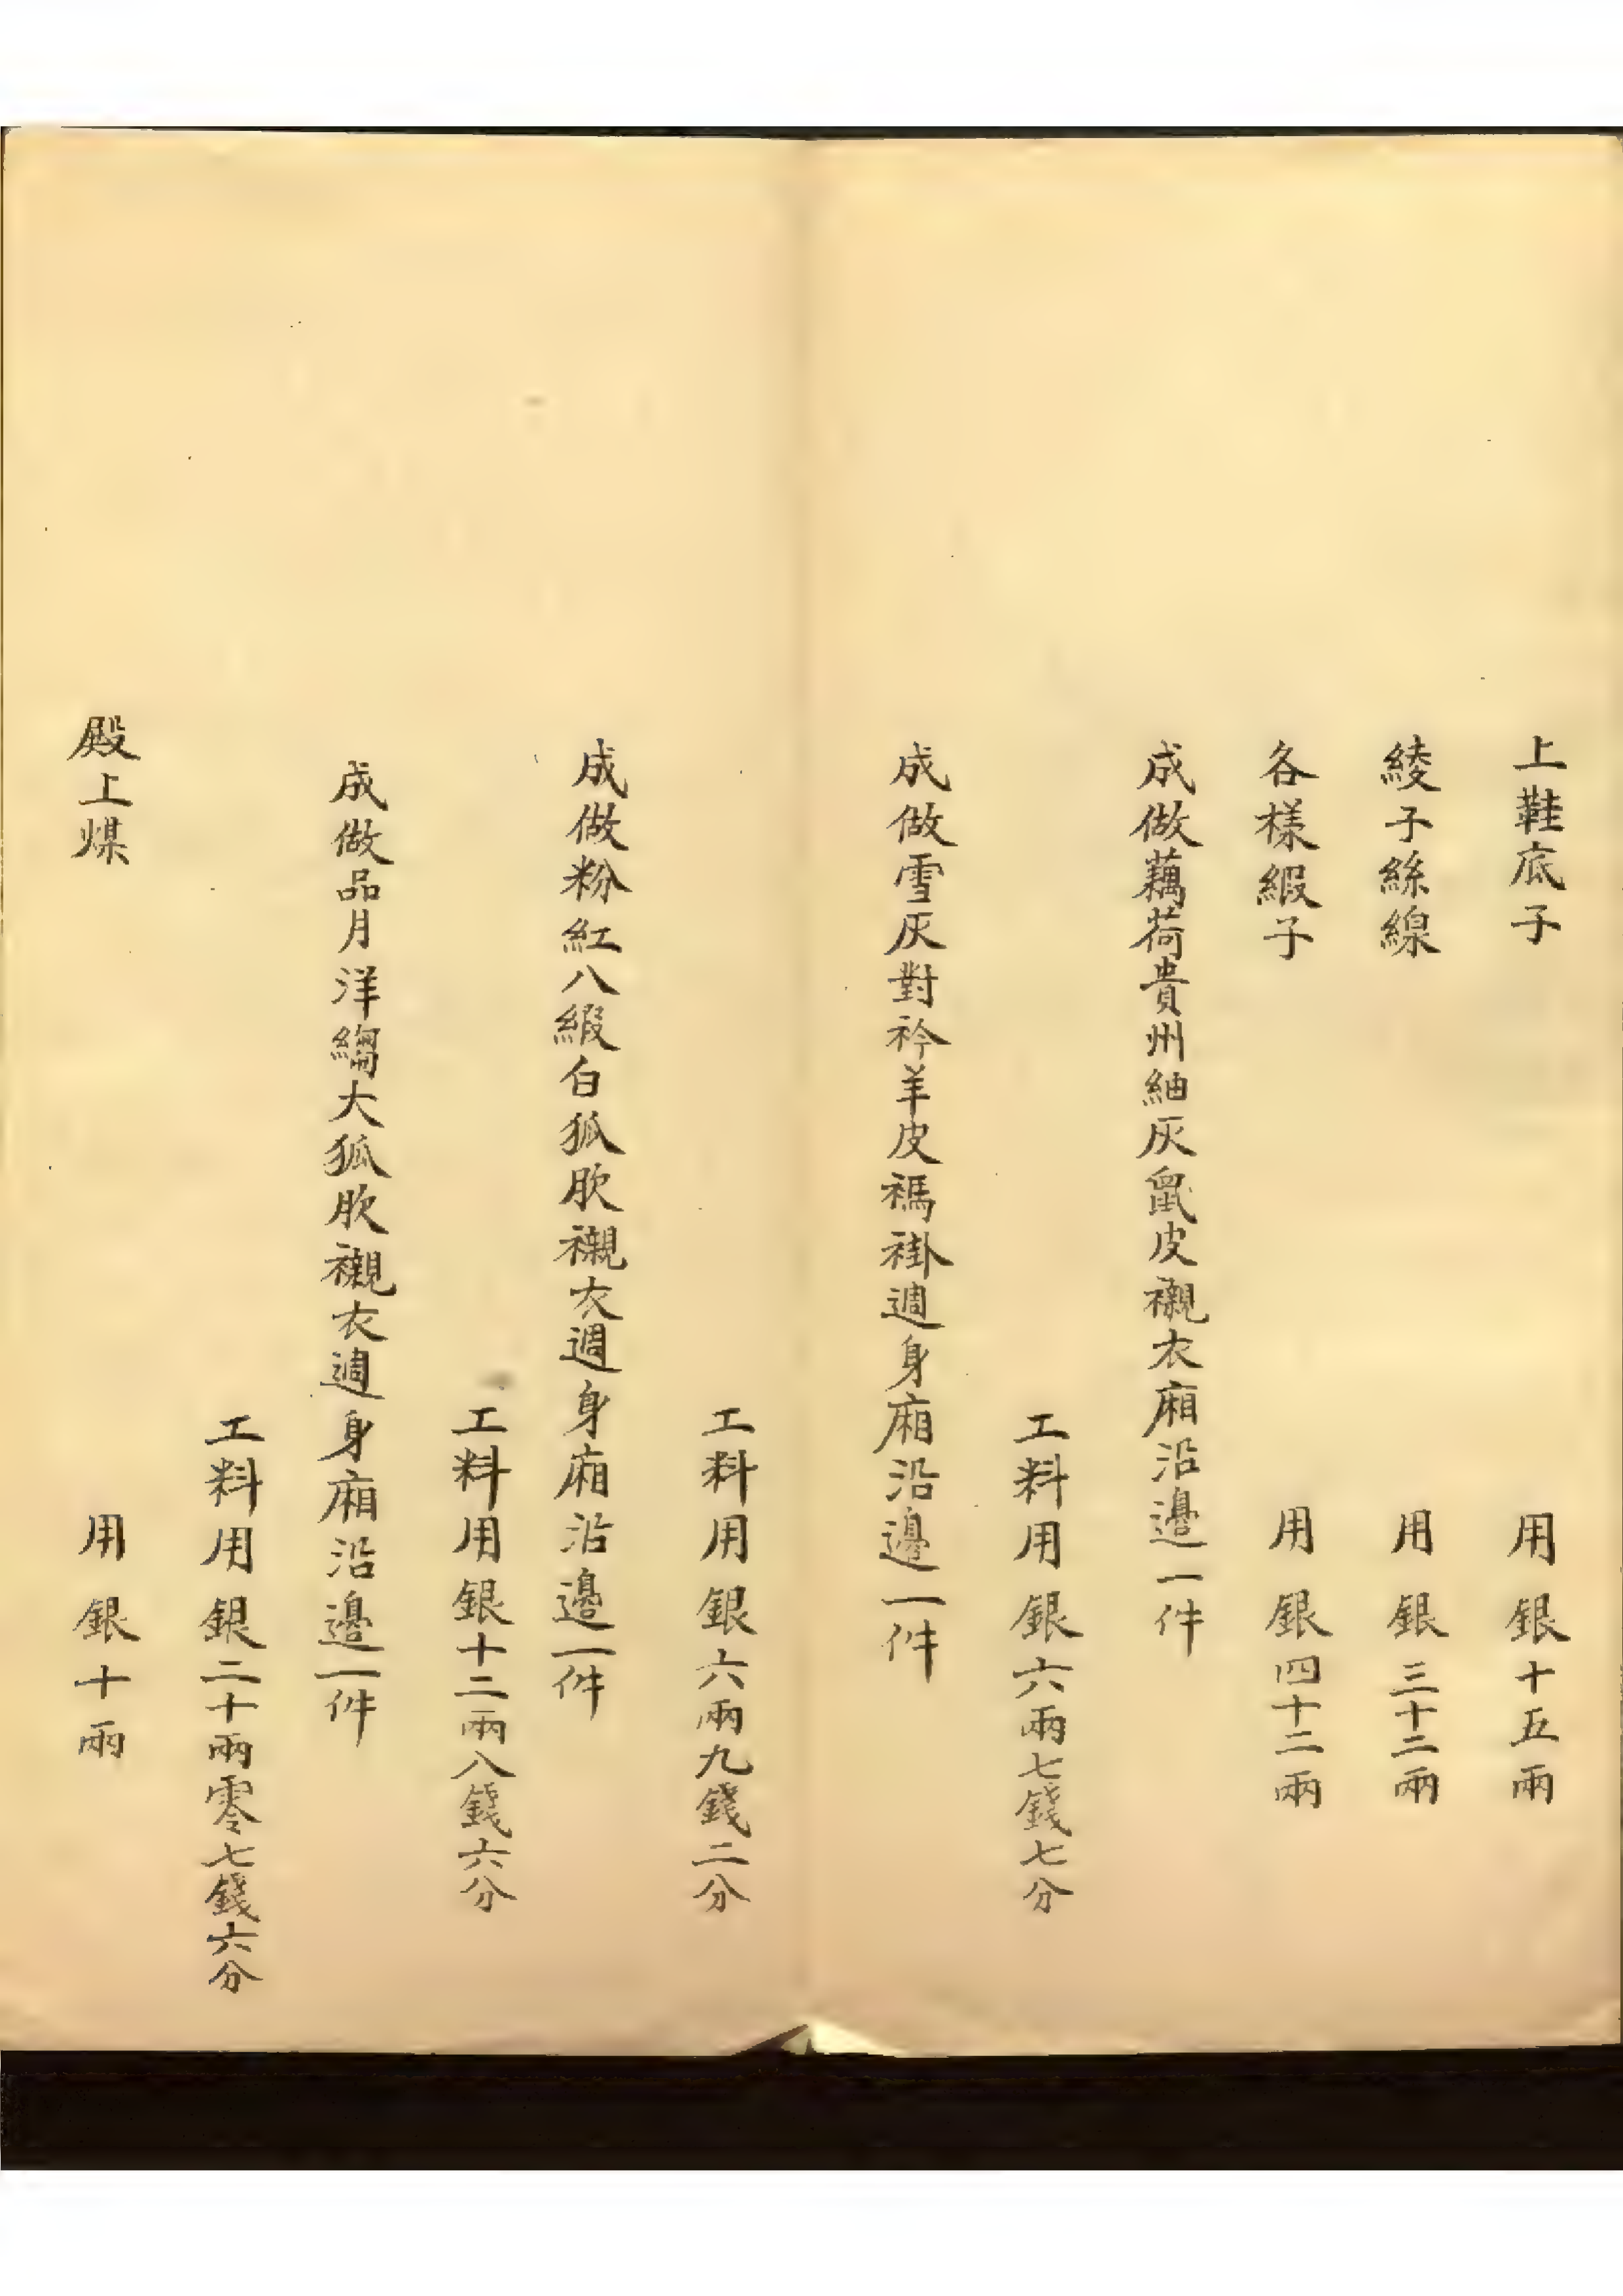 上鞋底子 用銀十五兩
綾子絲線 用銀三十二兩
各樣緞子 用銀四十二兩
成做藕荷貴州紬灰鼠皮襯衣廂沿邊一件
工料用銀六兩七錢七分
成做雪灰對衿羊皮褂週身廂沿邊一件
工料用銀六兩九錢二分
成做粉紅八緞白狐肷襯衣週身廂沿邊一件
工料用銀十二兩八錢六分
成做品月洋縐大狐肷襯衣週身廂沿邊一件
工料用銀二十兩零七錢六分
殿上煤 用銀十兩